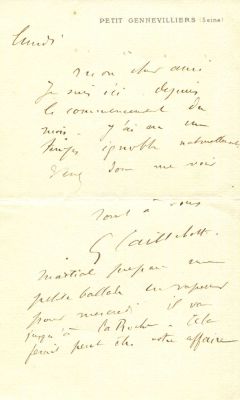 PETIT GENNEVILLIERS (Seine)
lundi
mon cher ami
Je suis ici depuis
le commencement du
mois. J'ai eu un
temps ignoble naturellement
Venez donc me voir
tout à vous
G Caillebotte
Martial prépare une
petite ballade en vapeur
pour mercredi il va
jusqu'à la Roche - Cela
ferait peut être votre affaire